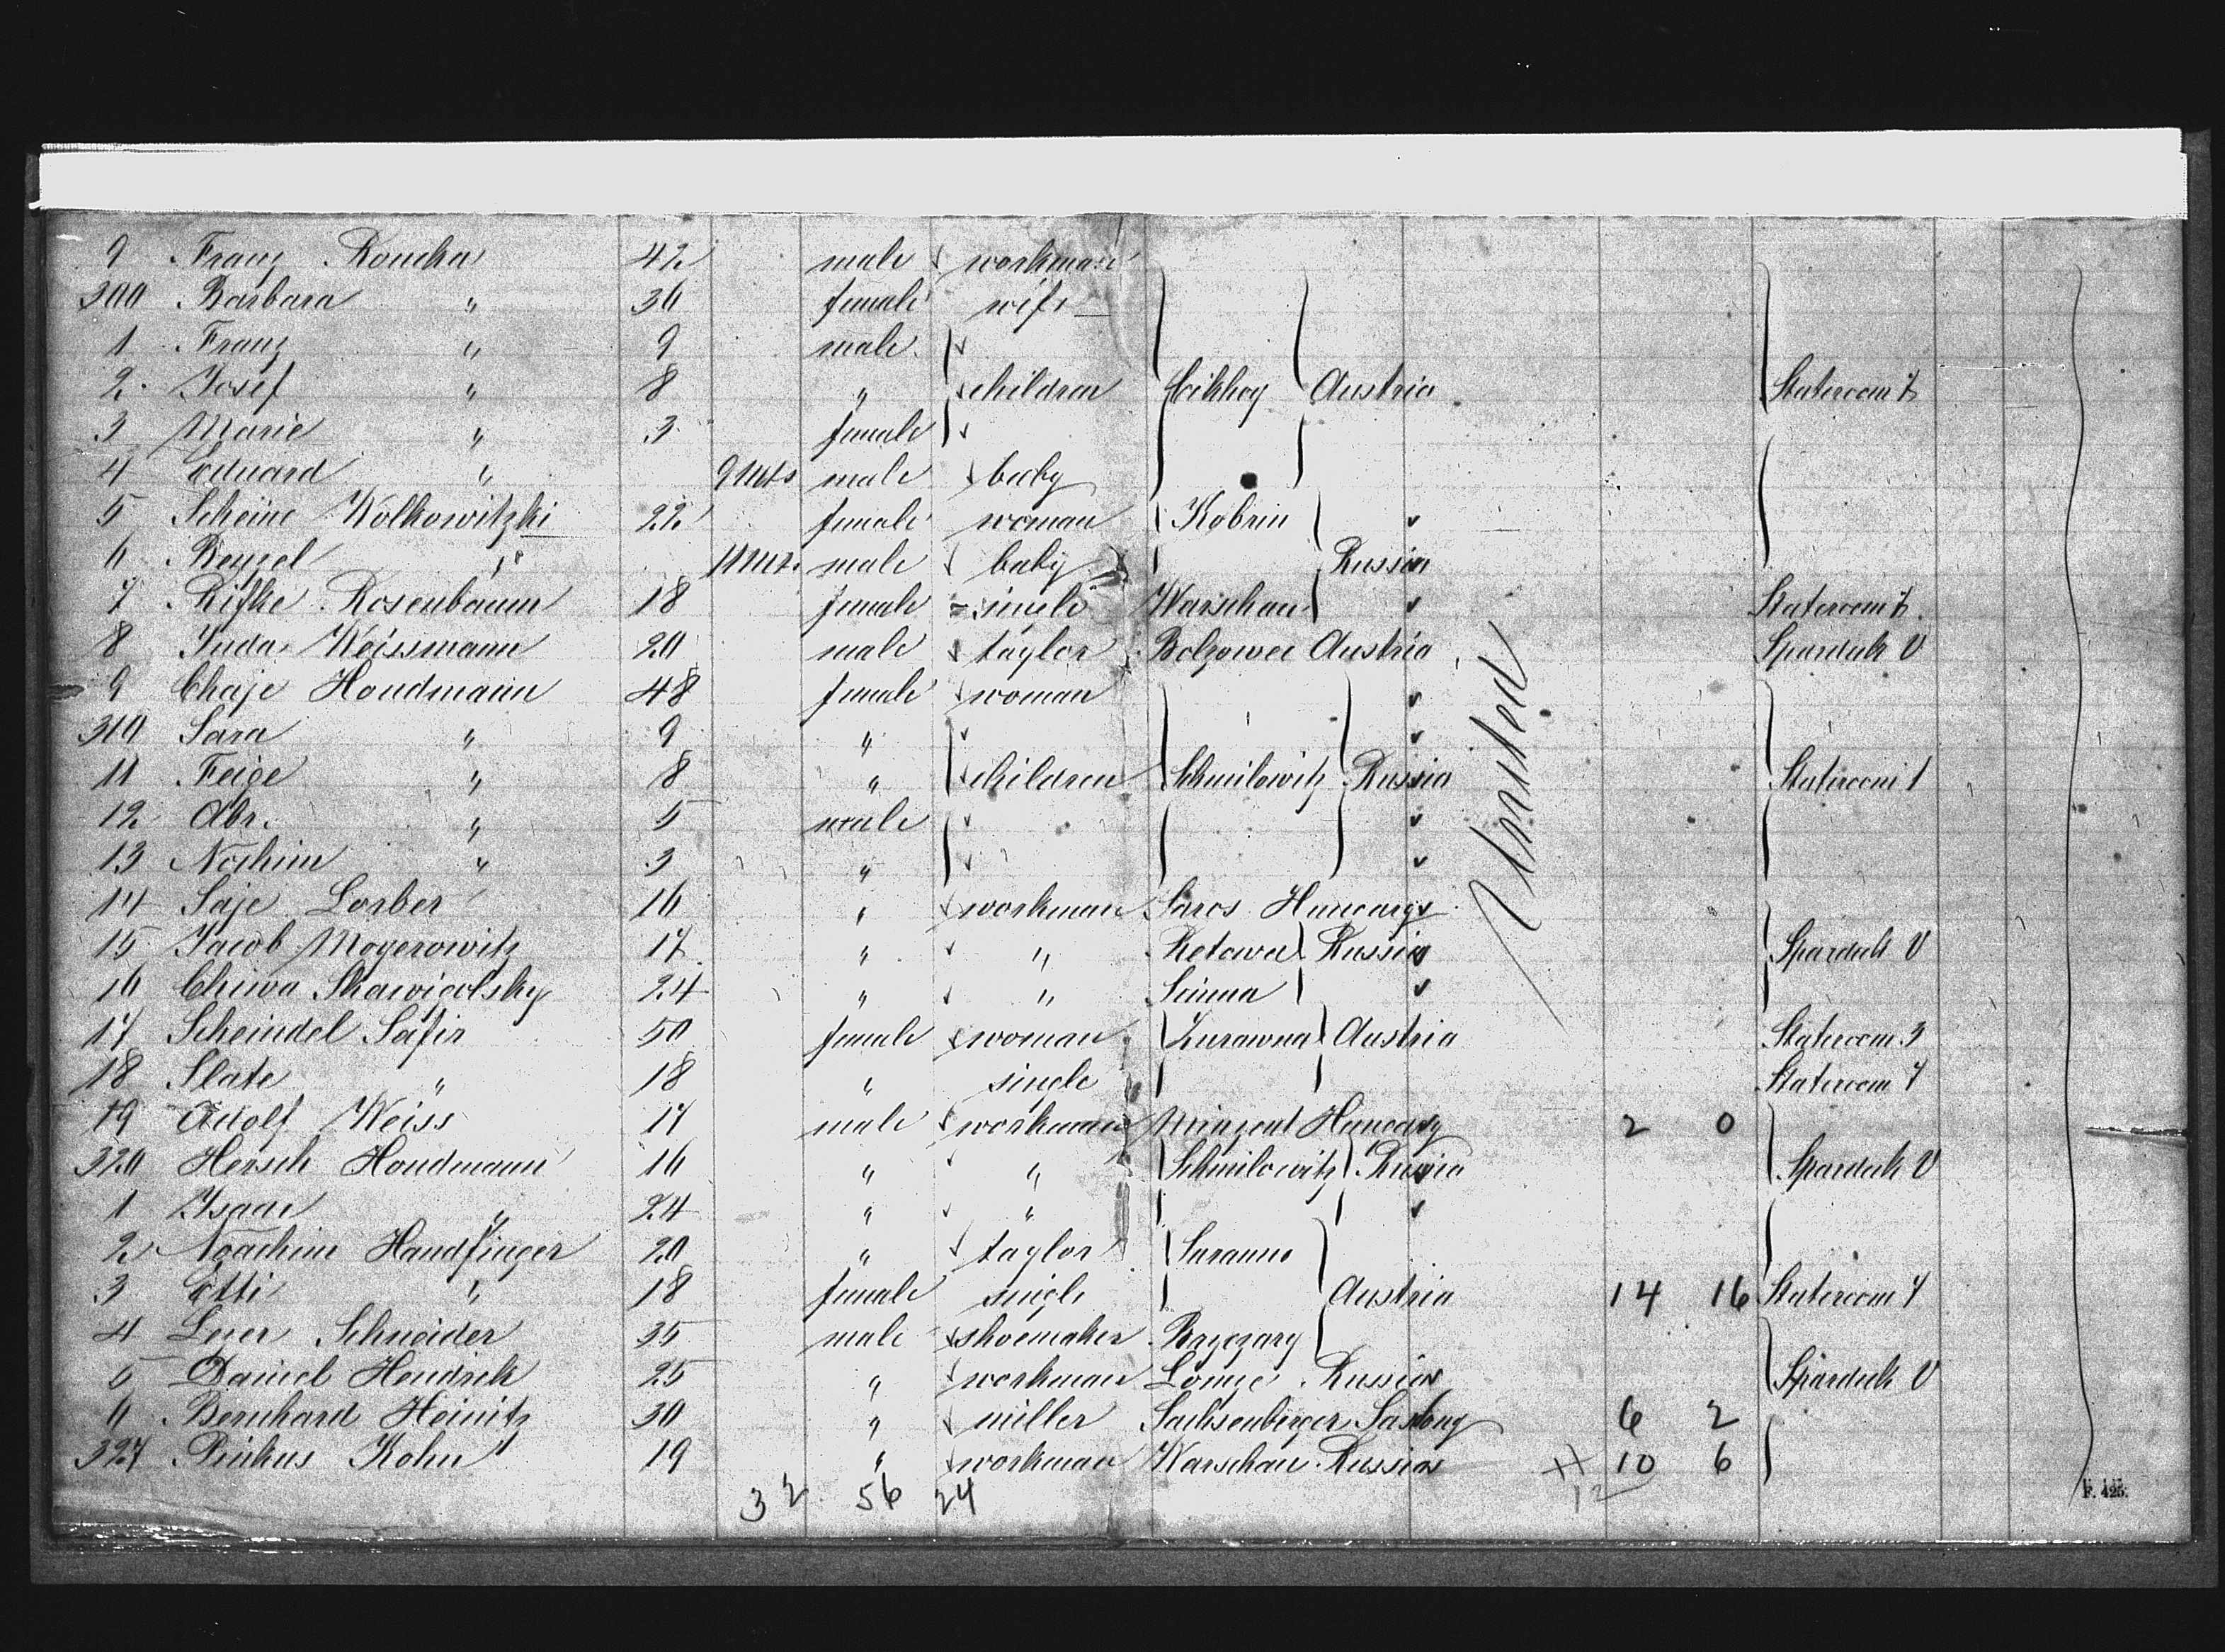 9 Franz Roucka 42 male workman
300 Barbara " 36 female wife
1 Franz " 9 male
2 Josef " 8 " children Austria Stateroom
3 Marie " 3 female
4 Eduard " 9 Mts male baby
5 Scheine Wolkowitzki 22 female woman Kobrin
6 " 11 Mts. male baby Russia
7 Rifke Rosenbaum 18 female single Warschau Stateroom
8 Juda Weissmann 20 male taylor Austria Spardeck V
9 Chaje Houdmann 48 female woman
310 Sara " 9 "
11 Feige " 8 " children Schmilowitz Russia Stateroom 1
12 Abr. " 5 male
13 Nochim " 3 "
14 Saje Lorber 16 " workman Saros Hungary
15 Jacob Mogerowitz 17 " " Retowa Russia Spardeck V
16 24 " "
17 Scheindel Safir 50 female woman Zurawna Austria Stateroom 3
18 Slate " 18 " single Stateroom 4
19 Adolf Weiss 17 male workman Hungary 2 0
320 Hersch Houdmann 16 " " Schmilowitz Russia Spardeck V
1 Ysaac " 24 " "
2 Noachim Handfinger 20 " taylor
3 Etti " 18 female single Austria 14 16 Stateroom 4
4 Schneider 35 male shoemaker
5 Daniel Hendrik 25 " workman Russia Spardeck V
6 Bernhard Heinitz 30 " miller Sachsenberger 6 2
327 Pinkus Kohn 19 " workman Warschau Russia 10 6
32 56 24 12
United
F. 425.